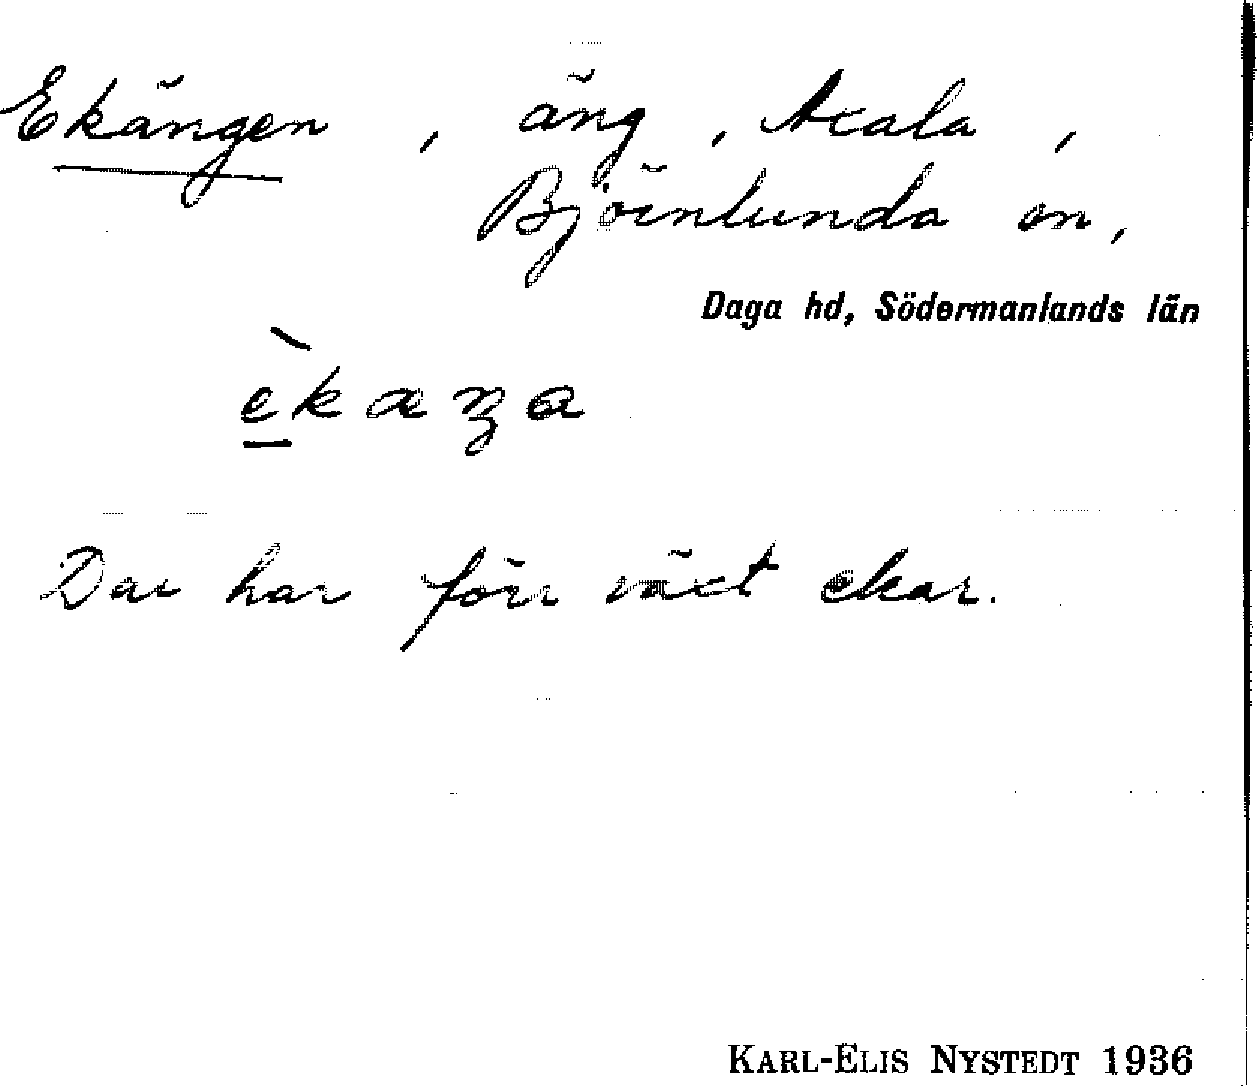 Ekängen, äng, Axala,
Björnlunda sn,
Daga hd, Södermanlands län
èkæŋa
Där har förr växt ekar.
KARL-ELIS NYSTEDT 1936